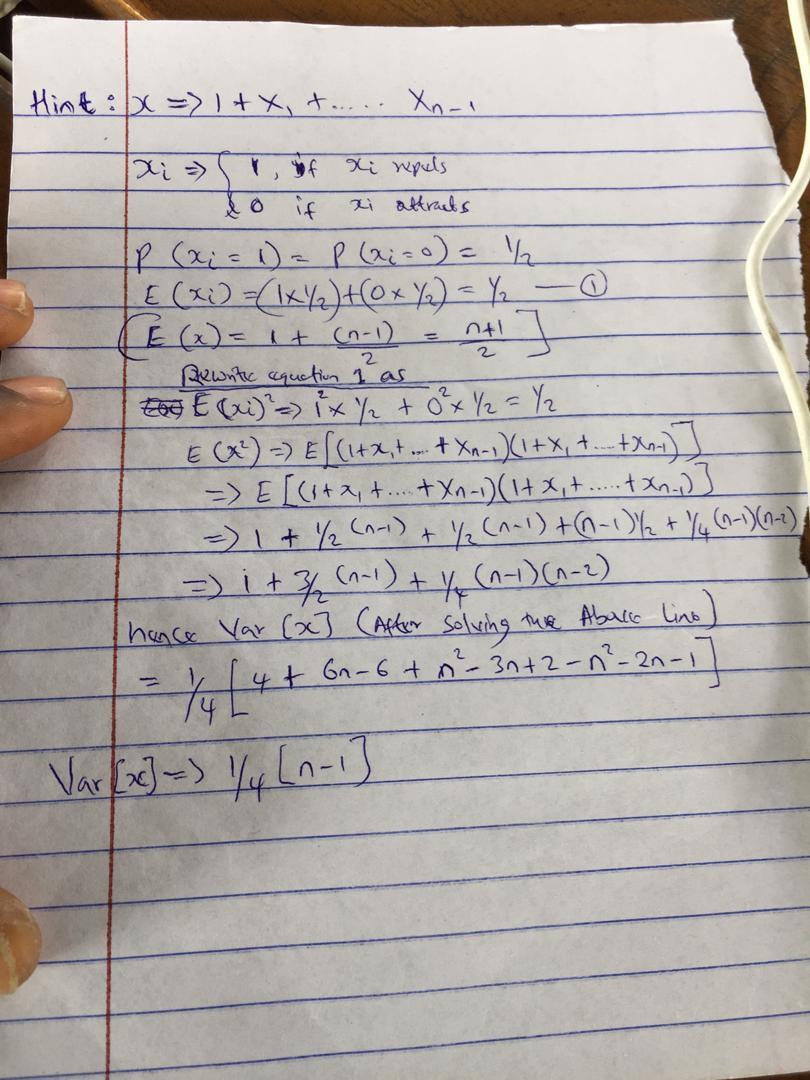 Hint : x => 1 + X₁ + ..... Xn-1
xi => { 1, if xi repels
0 if xi attracts
P (xi = 1) = P (xi = 0) = 1/2
E (xi) = (1x1/2)+(0x1/2) = 1/2 — ①
( E (x) = 1 + (n-1)/2 = n+1/2 ]
Rewrite equation 1 as
E (xi)² => 1² x 1/2 + 0² x 1/2 = 1/2
E (x²) => E[(1+x₁+....+Xn-1)(1+X₁+....+Xn-1)]
=> E [(1+x₁+....+Xn-1)(1+x₁+.....+xn-1)]
=> 1 + 1/2 (n-1) + 1/2 (n-1) + (n-1)1/2 + 1/4 (n-1)(n-2)
=> 1 + 3/2 (n-1) + 1/4 (n-1)(n-2)
hence Var [x] (After solving the Above Line)
= 1/4 [ 4 + 6n-6 + n² - 3n+2 - n² - 2n - 1 ]
Var [x] => 1/4 [n-1]